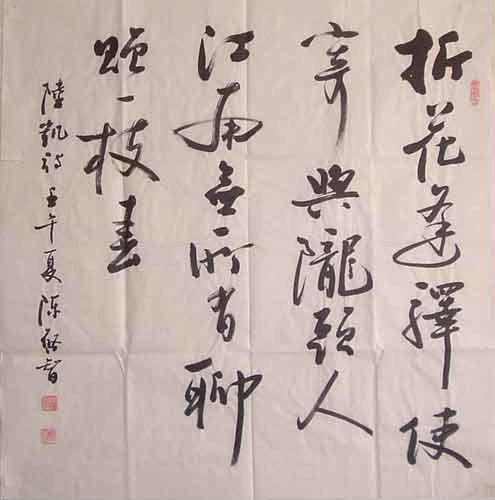 折花逢驛使
寄與隴頭人
江南無所有聊
贈一枝春
陸凱詩壬午夏陈啓智